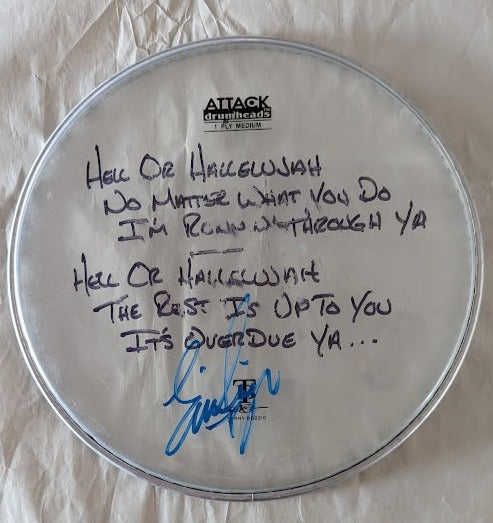 ATTACK
drumheads
1 PLY MEDIUM
HELL OR HALLELUJAH
NO MATTER WHAT YOU DO
I'M RUNN'N THROUGH YA
HELL OR HALLELUJAH
THE REST IS UP TO YOU
IT'S OVERDUE YA...
TERRY BOZZIO